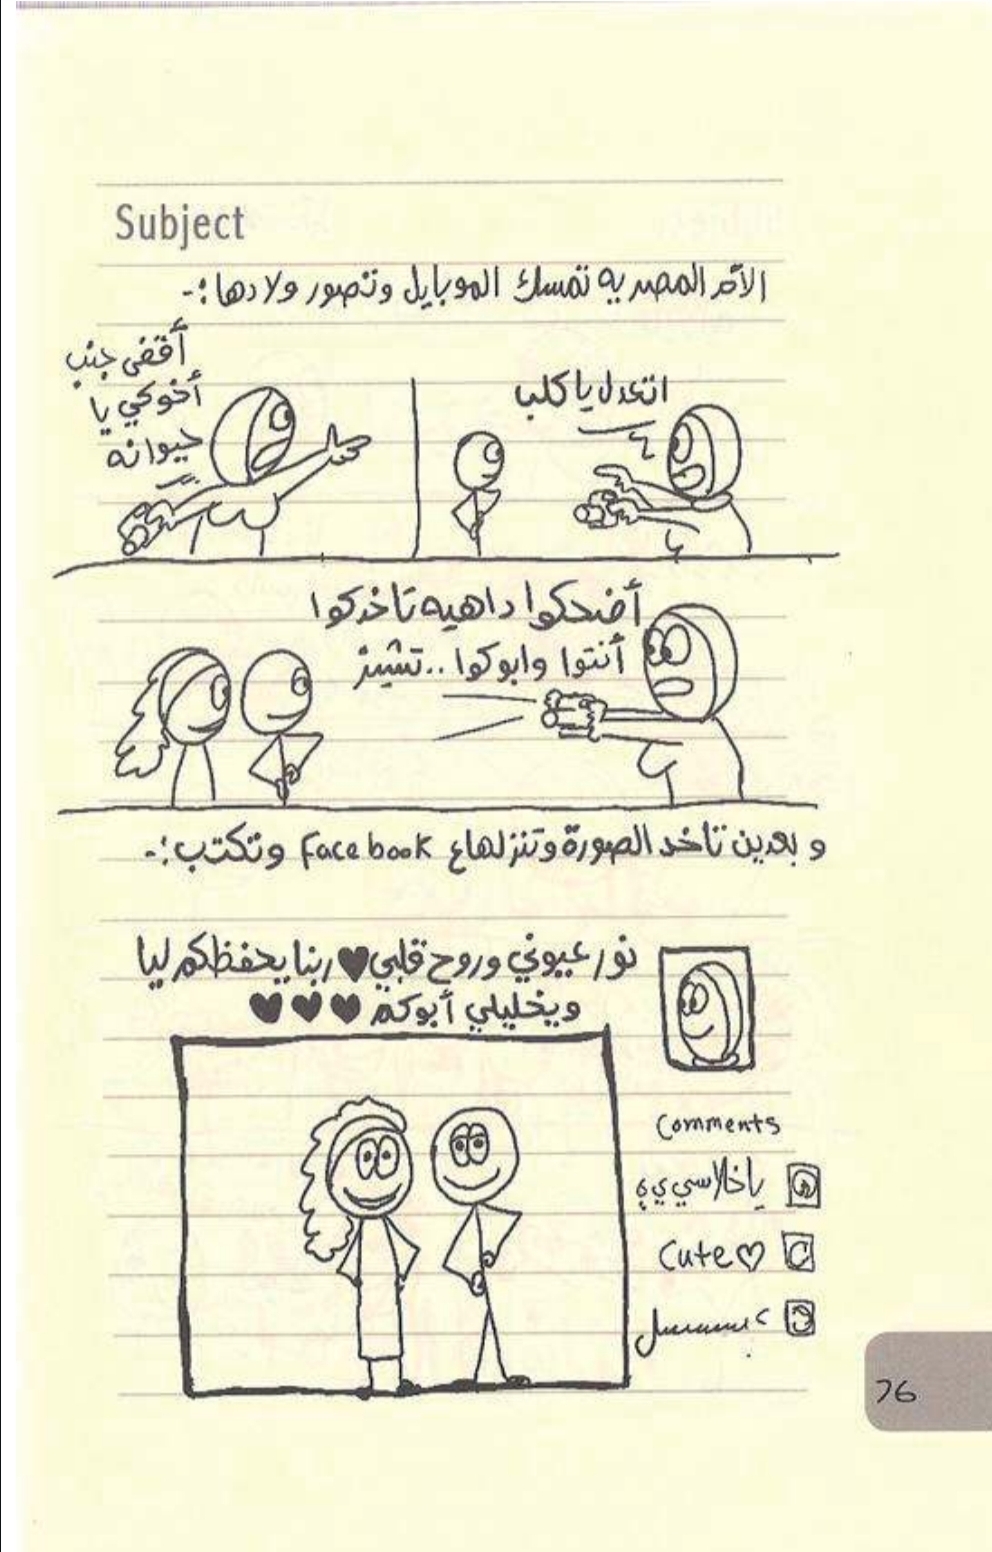 Subject
الأم المصريه تمسك الموبايل وتصور ولادها :-
اتعدل يا كلب
أقفى جنب
أخوكي يا
حيوانه
أضحكوا داهيه تاخدكوا
أنتوا وابوكوا .. تشييز
و بعدين تاخد الصورة وتنزلها ع Facebook وتكتب :-
نور عيوني وروح قلبي ♥ ربنا يحفظكم ليا
ويخليلي أبوكم ♥ ♥ ♥
Comments
ياخلاسيي ي
Cute ♡
26